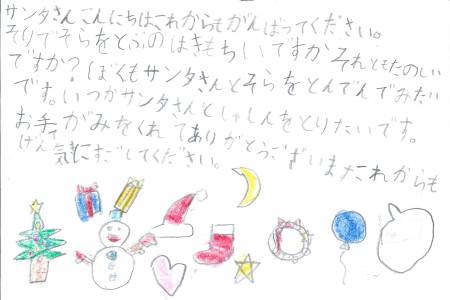 サンタさんこんにちはこれからもがんばってください。
そりでそらをとぶのはきもちいですかそれともたのしい
ですか？ぼくもサンタさんとそらをとんでんでみたい
です。いつかサンタさんとしゃしんをとりたいです。
お手がみをくれてありがとうございますこれからも
げん気にすごしてください。